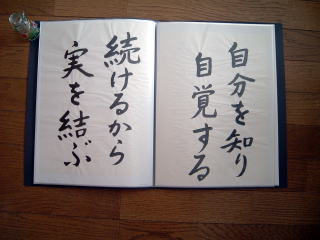 自分を知り
自覚する
続けるから
実を結ぶ